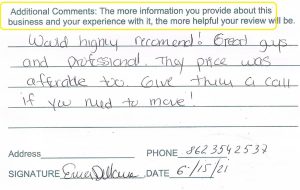 Additional Comments: The more information you provide about this
business and your experience with it, the more helpful your review will be.
Would highly recomend! Great guys
and Professional. They price was
afforable too. Give them a call
if you need to move!
Address PHONE 8623542537
SIGNATURE DATE 6/15/21